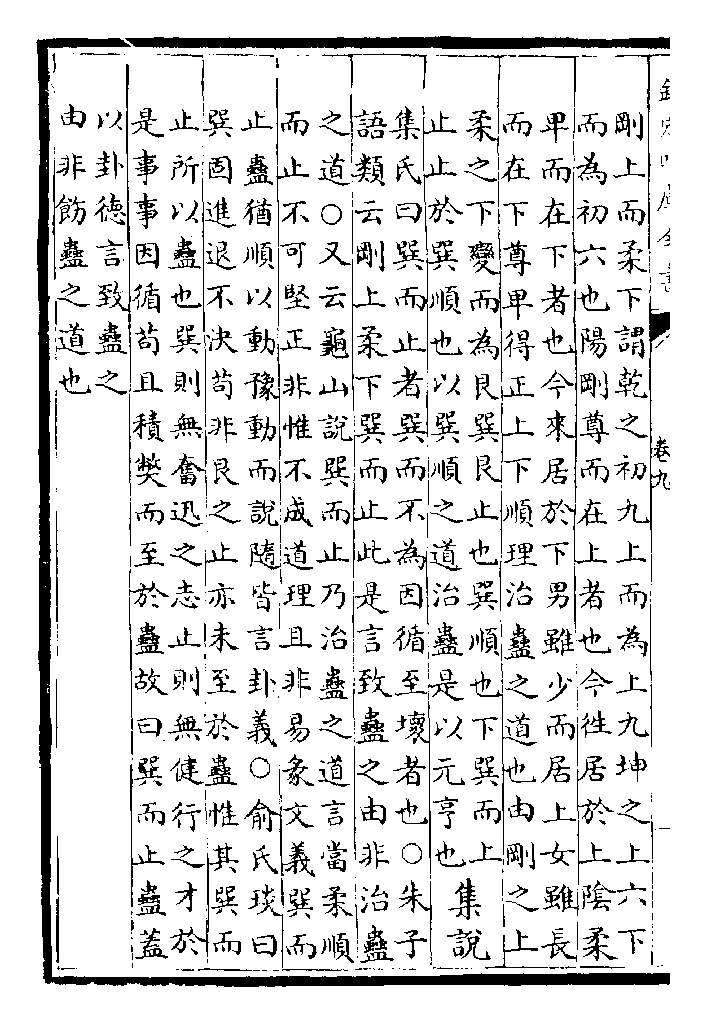 欽定四庫全書
卷九
剛上而柔下謂乾之初九上而為上九坤之上六下
而為初六也陽剛尊而在上者也今往居於上陰柔
卑而在下者也今來居於下男雖少而居上女雖長
而在下尊卑得正上下順理治蠱之道也由剛之上
柔之下變而為艮巽艮止也巽順也下巽而上
止止於巽順也以巽順之道治蠱是以元亨也
集說
集氏曰巽而止者巽而不為因循至壞者也○朱子
語類云剛上柔下巽而止此是言致蠱之由非治蠱
之道○又云龜山說巽而止乃治蠱之道言當柔順
而止不可堅正非惟不成道理且非易彖文義巽而
止蠱猶順以動豫動而說隨皆言卦義○俞氏琰曰
巽固進退不決苟非艮之止亦未至於蠱惟其巽而
止所以蠱也巽則無奮迅之志止則無健行之才於
是事事因循苟且積弊而至於蠱故曰巽而止蠱蓋
以卦德言致蠱之
由非飭蠱之道也